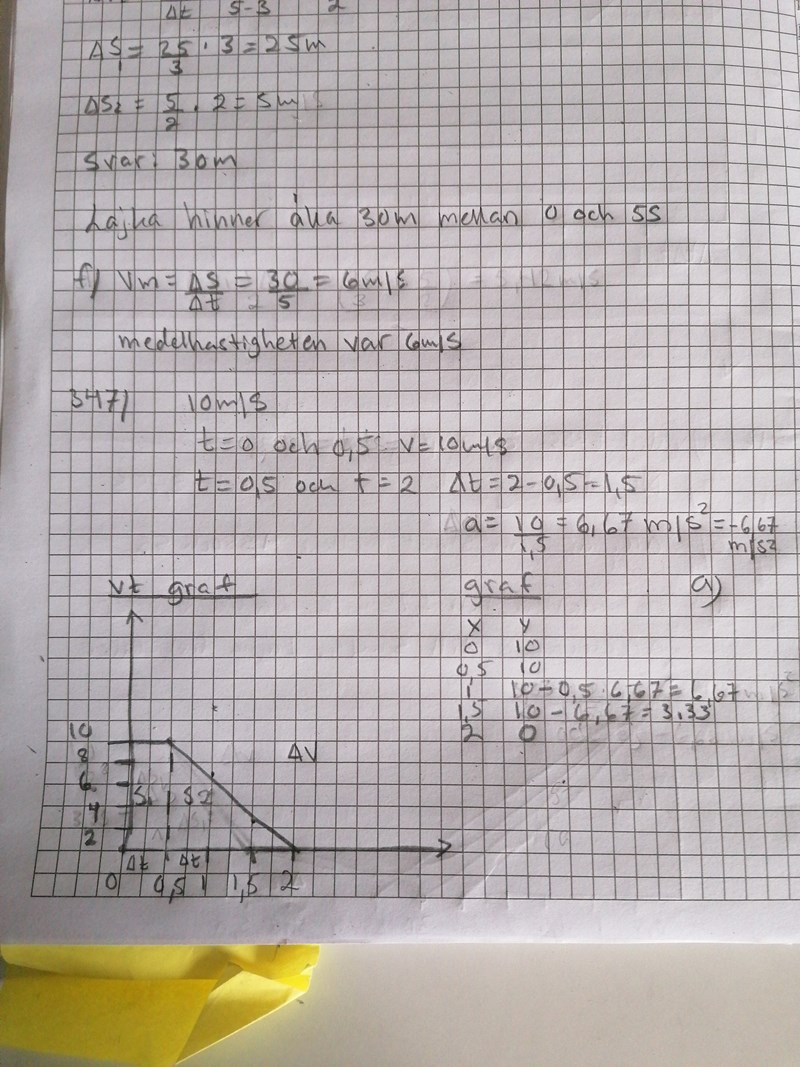 Δt 5-3 2
ΔS1 = 25/3 · 3 = 25m
ΔS2 = 5/2 · 2 = 5m
Svar: 30m
Lajka hinner åka 30m mellan 0 och 5S
f) Vm = ΔS/Δt = 30/5 = 6m/s
medelhastigheten var 6m/s
3417) 10m/s
t=0 och 0,5 v=10m/s
t=0,5 och t=2 Δt=2-0,5=1,5
a= 10/1,5 = 6,67 m/s² = -6,67 m/s2
vt graf
graf a)
x y
0 10
0,5 10
1 10-0,5·6,67=6,67
1,5 10-6,67=3,33
2 0
10
8 ΔV
6
S1 S2
4
2
Δt Δt
0 0,5 1 1,5 2